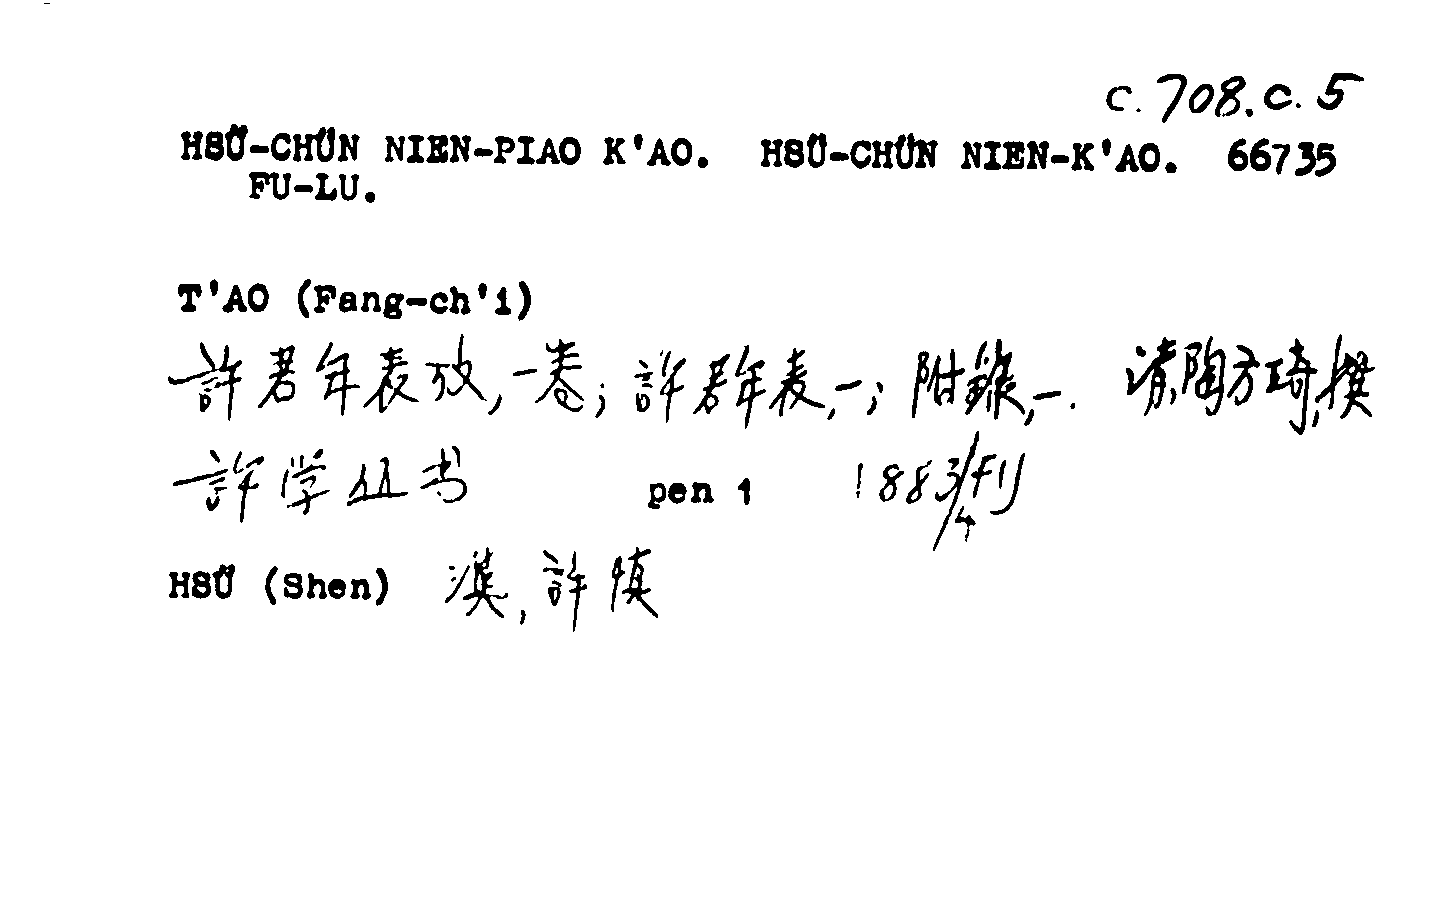 c.708.c.5
HSÜ-CHÜN NIEN-PIAO K'AO. HSÜ-CHÜN NIEN-K'AO. 66735
FU-LU.
T'AO (Fang-ch'i)
許君年表攷,一卷;許君年表,一;附錄,一. 清,陶方琦,撰
許学丛书 pen 1 1883/4刊
HSÜ (Shen) 漢,許慎